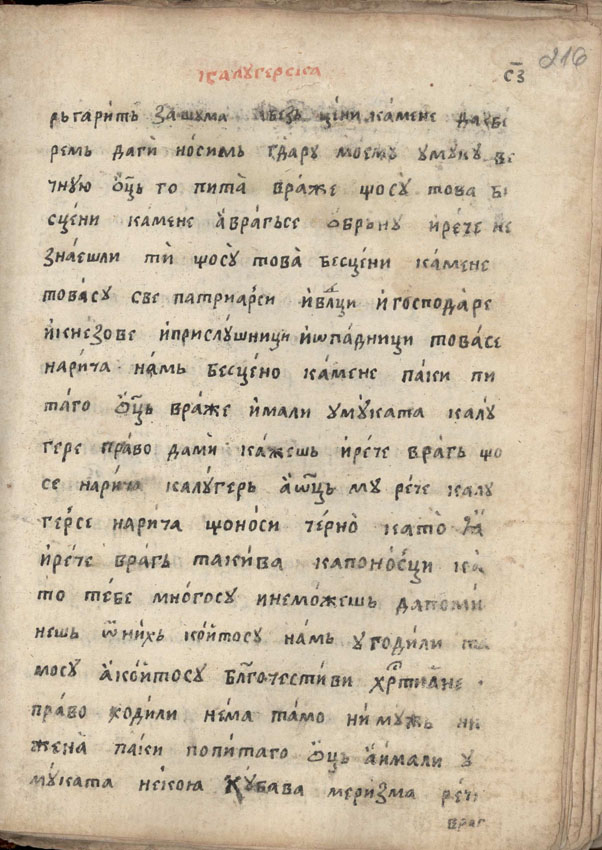 калꙋгерска
с҃з
216
рьгарить зашума ꙗ безь цѣни камене да бе
ремь даги носимь г҃дару моемꙋ ꙋмукꙋ ве
чную ѻ҃ць го пита̀ вра́же щосꙋ това бе
сцени ка́мене а҆врагьсе ѻбрьнꙋ ирѐче не
зна́ешли тѝ щосꙋ̀ това̀ бесцени ка́мене
това̀сꙋ све патриарси ивл҃ци игосподаре
икнезове иприслꙋ́шници иѡпадници това̀се
нари́ча на́мь бесце́но ка́мене па́ки пи
таго ѻ҃ць вра́же и҆мали ꙋмꙋката калꙋ
гере пра́во дами ка́жешь ирѐче врагь що
се нари́ча калꙋ́герь а҆ѡ҃ць мꙋ рѐче калꙋ
ге́рсе нари́ча щоно́си че́рно като̀
ирѐче врагь таки́ва капоно́сци ка
то те́бе мно́госꙋ инемо́жешь дапоми
нешь ѿни́хь ко́йтосꙋ намь ꙋгоди́ли та
мосꙋ а҆ко́йтосꙋ бл҃гочести́ви хрⷭ҇тиане
пра́во ходи́ли не́ма та́мо ни мꙋжь ни
жена̀ па́ки попи́таго ѻ҃ць а҆и҆мали ꙋ
мꙋ́ката некою хꙋ́бава меризма рѐче
враг